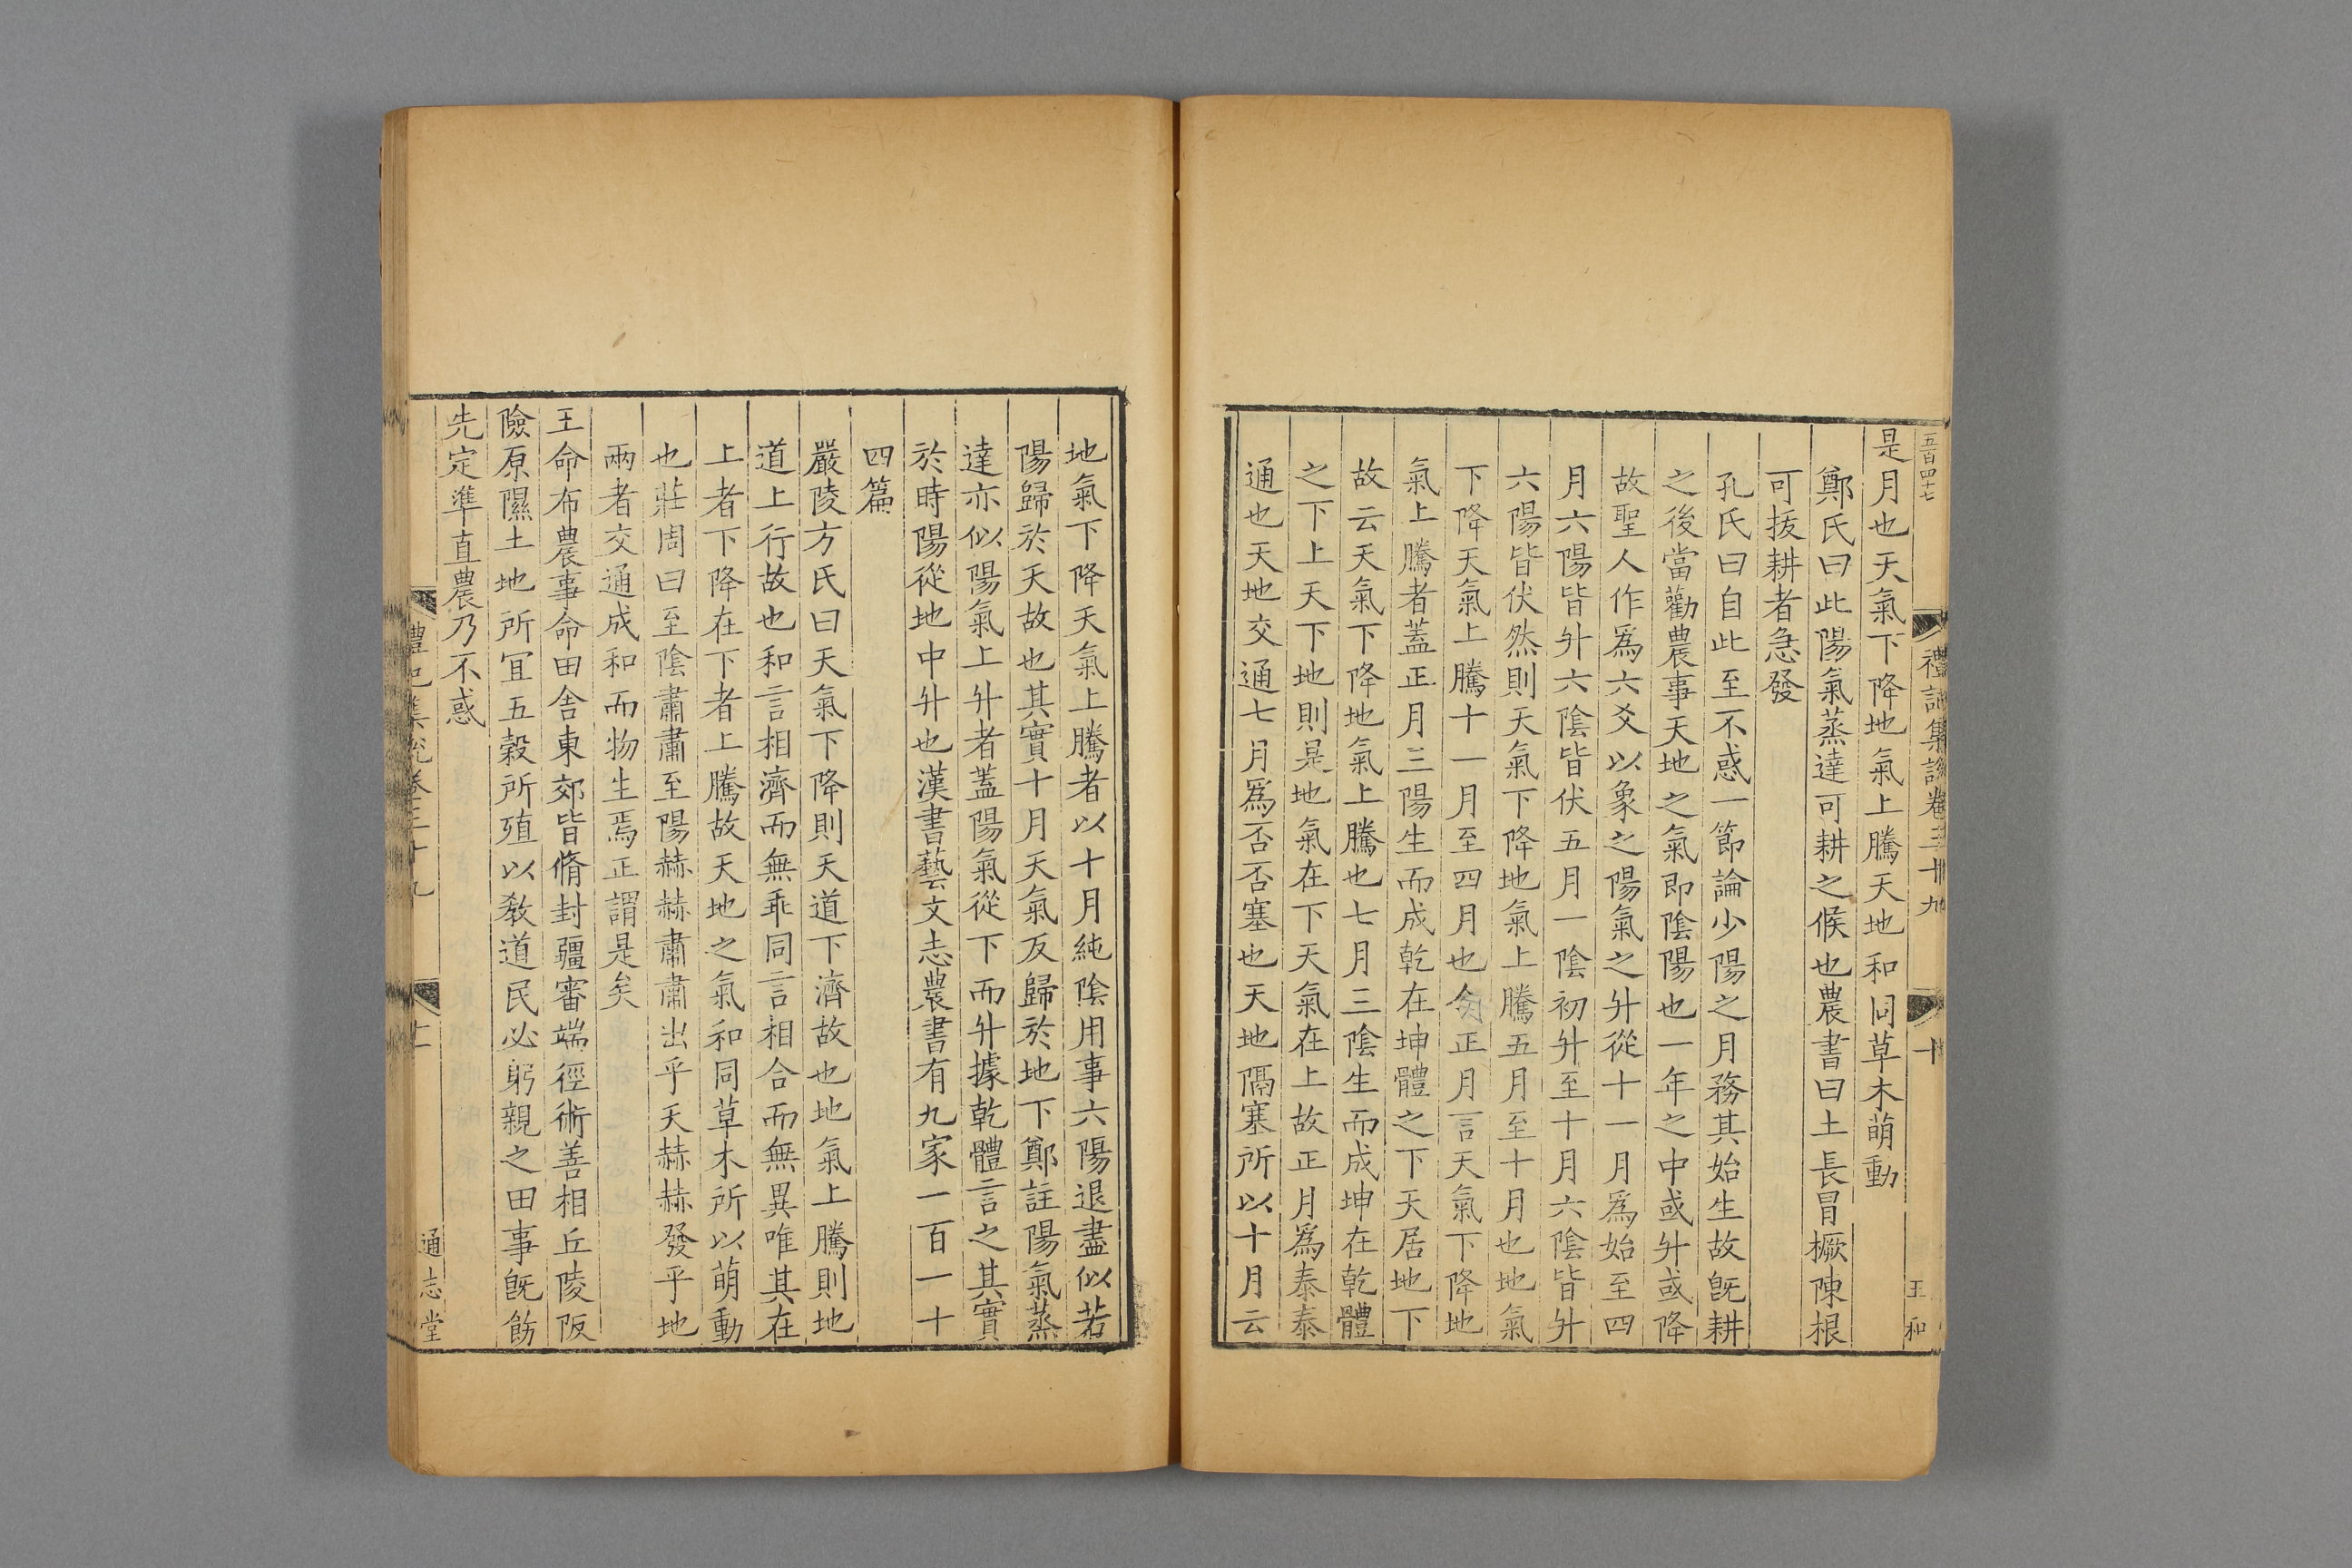 五百四十七
禮記集說卷三十九
十
王和
是月也天氣下降地氣上騰天地和同草木萌動
鄭氏曰此陽氣蒸達可耕之候也農書曰土長冒橛陳根
可拔耕者急發
孔氏曰自此至不惑一節論少陽之月務其始生故旣耕
之後當勸農事天地之氣即陰陽也一年之中或升或降
故聖人作爲六爻以象之陽氣之升從十一月爲始至四
月六陽皆升六陰皆伏五月一陰初升至十月六陰皆升
六陽皆伏然則天氣下降地氣上騰五月至十月也地氣
下降天氣上騰十一月至四月也今正月言天氣下降地
氣上騰者蓋正月三陽生而成乾在坤體之下天居地下
故云天氣下降地氣上騰也七月三陰生而成坤在乾體
之下上天下地則是地氣在下天氣在上故正月爲泰泰
通也天地交通七月爲否否塞也天地隔塞所以十月云
地氣下降天氣上騰者以十月純陰用事六陽退盡似若
陽歸於天故也其實十月天氣反歸於地下鄭註陽氣蒸
達亦似陽氣上升者蓋陽氣從下而升據乾體言之其實
於時陽從地中升也漢書藝文志農書有九家一百一十
四篇
嚴陵方氏曰天氣下降則天道下濟故也地氣上騰則地
道上行故也和言相濟而無乖同言相合而無異唯其在
上者下降在下者上騰故天地之氣和同草木所以萌動
也莊周曰至陰肅肅至陽赫赫肅肅出乎天赫赫發乎地
兩者交通成和而物生焉正謂是矣
王命布農事命田舍東郊皆脩封疆審端徑術善相丘陵阪
險原隰土地所宜五穀所殖以敎道民必躬親之田事旣飭
先定準直農乃不惑
禮記集說卷三十九
十一
通志堂